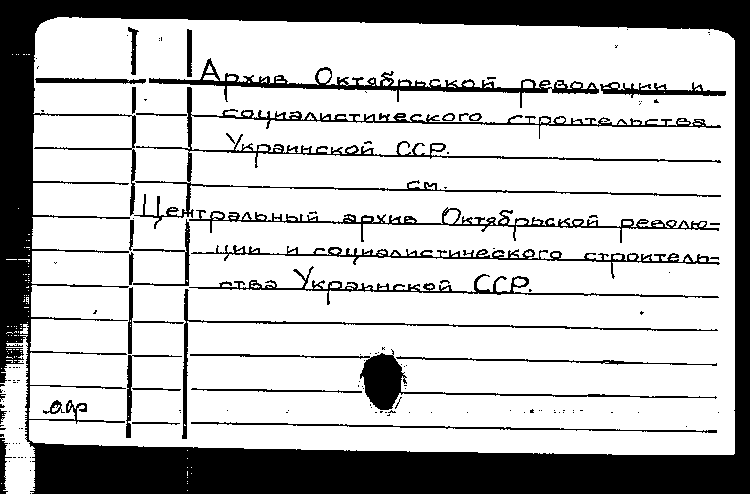 Архив Октябрьской революции и
социалистического строительства
Украинской ССР.
см.
Центральный архив Октябрьской револю-
ции и социалистического строитель-
ства Украинской ССР.